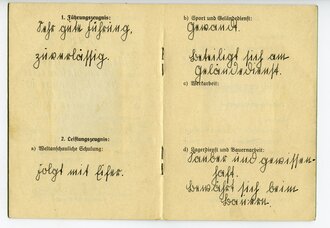 1. Führungszeugnis:
Sehr gute Führung,
zuverlässig.
2. Leistungszeugnis:
a) Weltanschauliche Schulung:
folgt mit Eifer.
b) Sport und Geländedienst:
Gewandt.
Beteiligt sich am
Geländedienst.
c) Werkarbeit:
d) Lagerdienst und Bauernarbeit:
Sauber und gewissen-
haft.
Bewährt sich beim
Bauern.